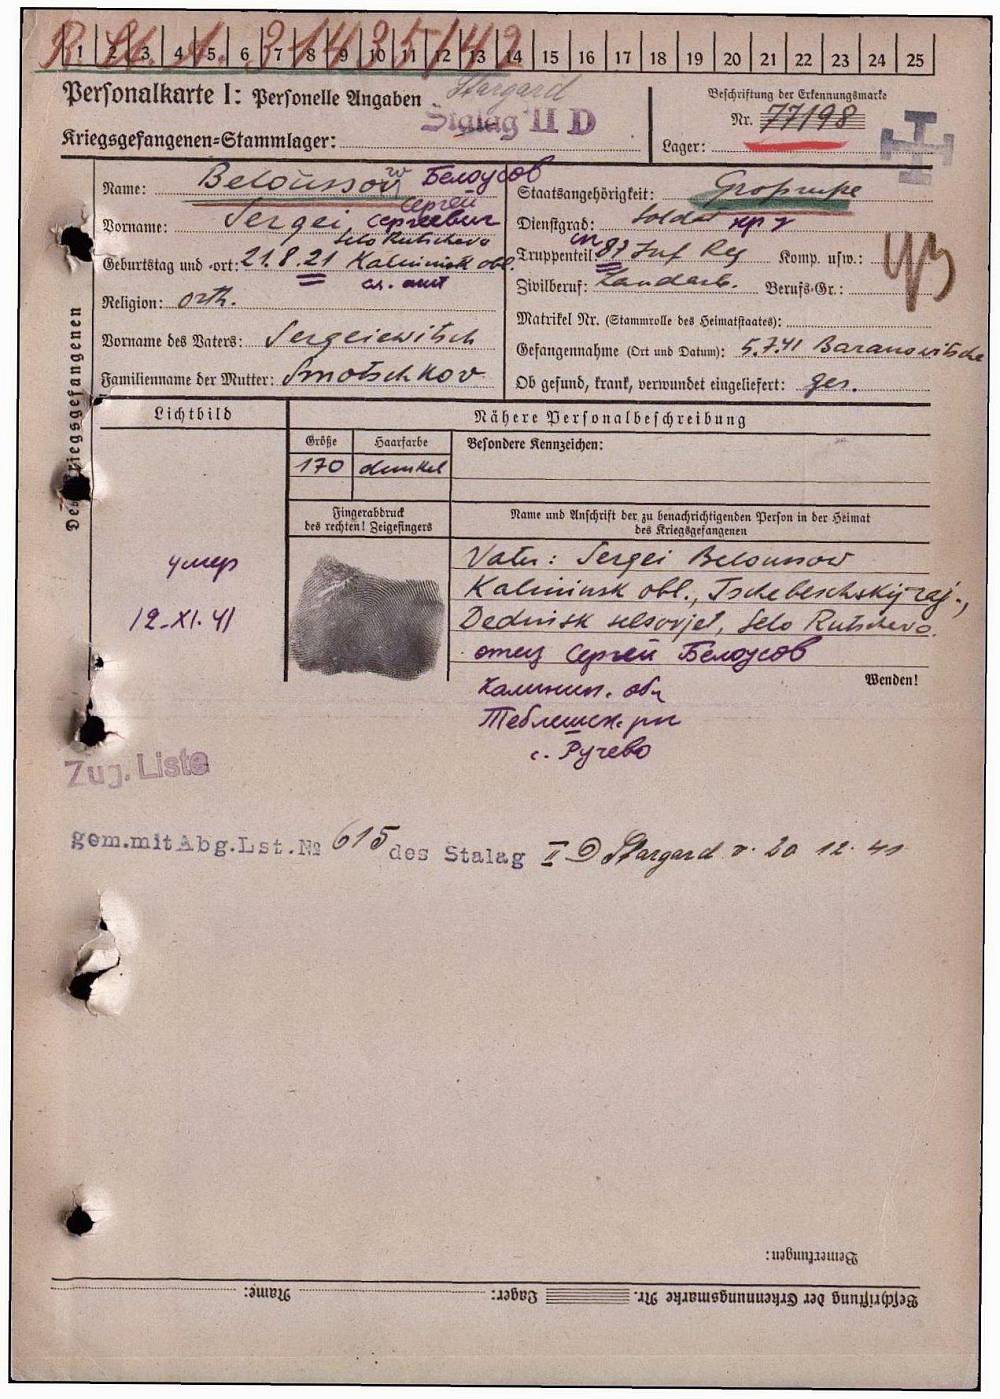 R. St. A. 314 35/42
1 2 3 4 5 6 7 8 9 10 11 12 13 14 15 16 17 18 19 20 21 22 23 24 25
Personalkarte I: Personelle Angaben
Stargard
Stalag II D
Kriegsgefangenen-Stammlager:
Beschriftung der Erkennungsmarke
Nr. 77198
Lager:
Des Kriegsgefangenen
Name: Beloussow Белоусов
Vorname: Sergei Сергей Сергеевич
Selo Rutschevo
Geburtstag und -ort: 21.8.21 Kalininsk obl.
Religion: orth.
Vorname des Vaters: Sergeiewitsch
Familienname der Mutter: Smotschkov
Staatsangehörigkeit: Großrusse
Dienstgrad: Soldat кр
Truppenteil: 87 Inf Reg Komp. usw.:
Zivilberuf: Landarb. Berufs-Gr.:
Matrikel Nr. (Stammrolle des Heimatstaates):
Gefangennahme (Ort und Datum): 5.7.41 Baranowitsche
Ob gesund, krank, verwundet eingeliefert: ges.
Lichtbild
Nähere Personalbeschreibung
Größe Haarfarbe Besondere Kennzeichen:
170 dunkel
Fingerabdruck
des rechten! Zeigefingers
Name und Anschrift der zu benachrichtigenden Person in der Heimat
des Kriegsgefangenen
умер
12-XI-41
Vater: Sergei Beloussow
Kalininsk obl., Tschebeschskij raj.,
Dedinsk selsovjet, Selo Rutschevo.
отец Сергей Белоусов
Калинин. обл
Теблешск. рн
с. Ручево
Wenden!
Zug. Liste
gem.mit Abg.Lst.№ 615 des Stalag II D Stargard v. 20 12. 41
Bemerkungen:
Beschriftung der Erkennungsmarke Nr. Lager: Name: